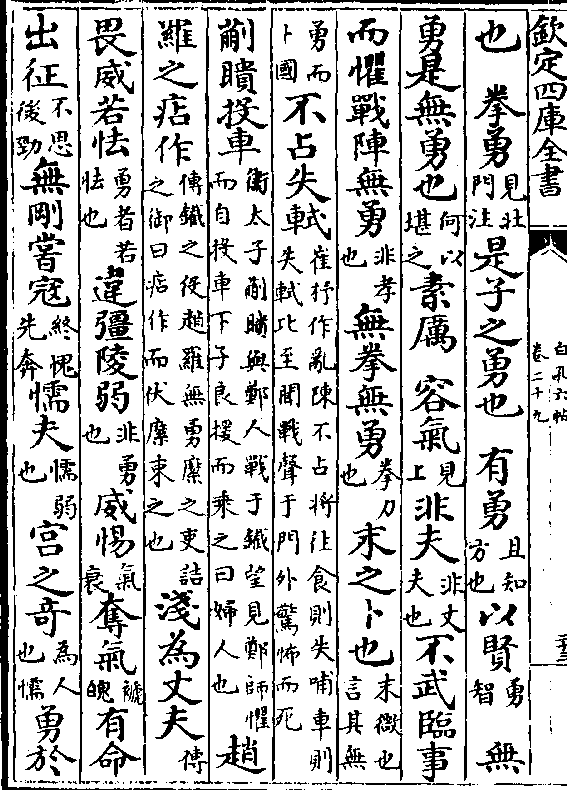 欽定四庫全書
白孔六帖
卷二十九
也　拳勇見壯門注是子之勇也　有勇且知方也以賢勇智　無
勇是無勇也何以堪之素厲　容氣見上非夫非丈夫也不武臨事
而懼戰陣無勇非孝也　無拳無勇拳力也末之卜也末微也言其無
勇而卜國不占失軾崔杼作亂陳不占將往食則失哺車則失軾比至聞戰聲于門外驚怖而死
蒯瞶投車衛太子蒯瞶與鄭人戰于鐵望見鄭師懼而自投車下子良援而乗之曰婦人也　趙
羅之痁作傳鐵之役趙羅無勇縻之吏詰之御曰痁作而伏縻束之也　淺為丈夫傳
畏威若怯勇者若怯也　違彊陵弱非勇也威惕氣衰奪氣褫魄有命
出征不思後勁無剛嘗寇終愧先奔懦夫懦弱也　宫之奇為人也懦勇於